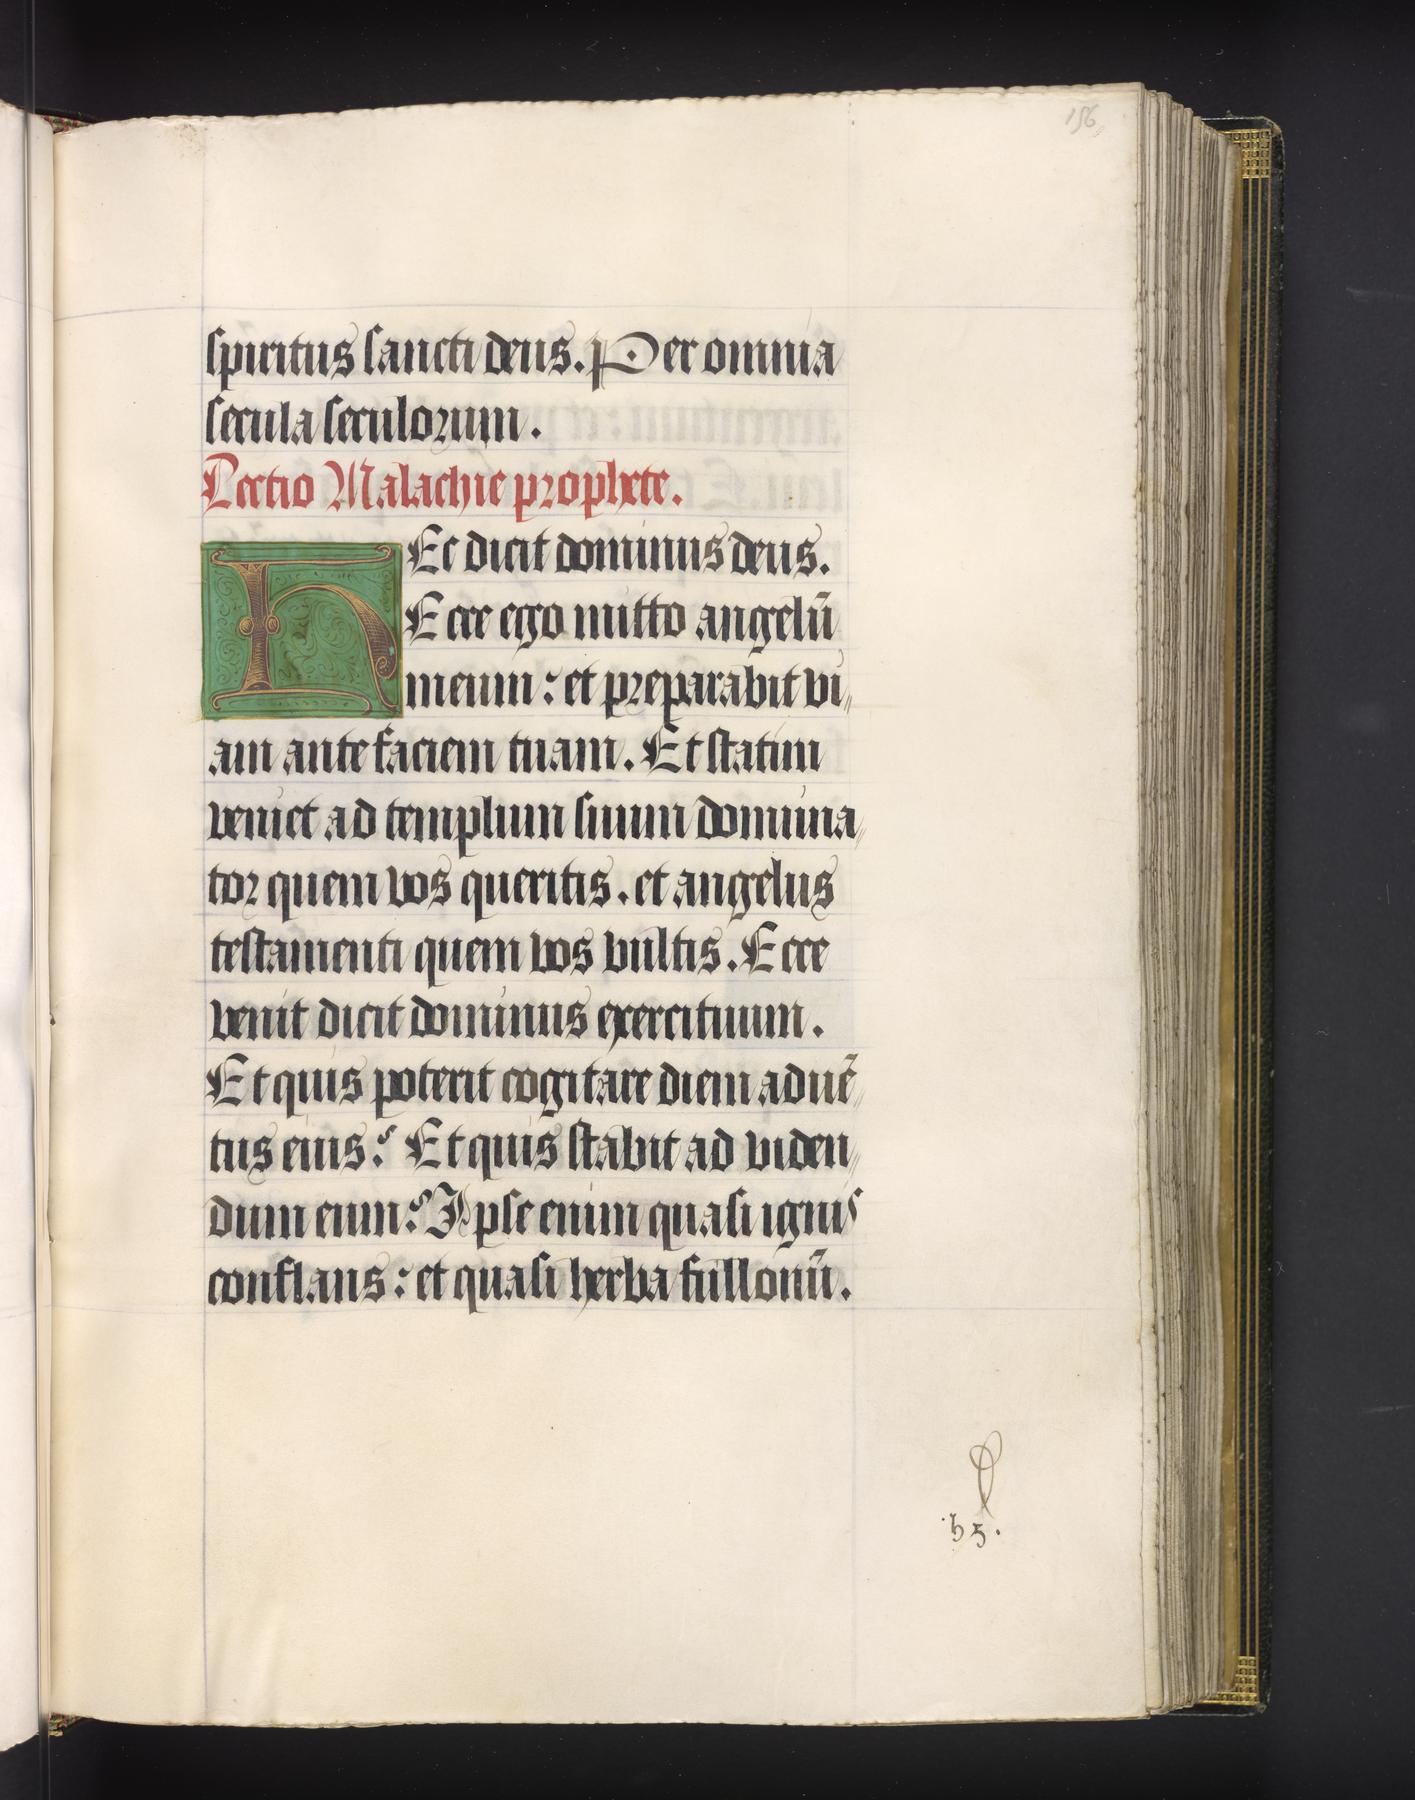 156
spiritus sancti deus. Per omnia
secula seculorum.
Lectio Malachie prophete.
HEc dicit dominus deus.
Ecce ego mitto angelū
meum: et preparabit vi„
am ante faciem tuam. Et statim
veniet ad templum suum domina„
tor quem vos queritis. et angelus
testamenti quem vos vultis. Ecce
venit dicit dominus exercituum.
Et quis poterit cogitare diem aduē„
tus eius? Et quis stabit ad viden„
dum eum? Ipse enim quasi ignis
conflans: et quasi herba fullonū.
.h5.